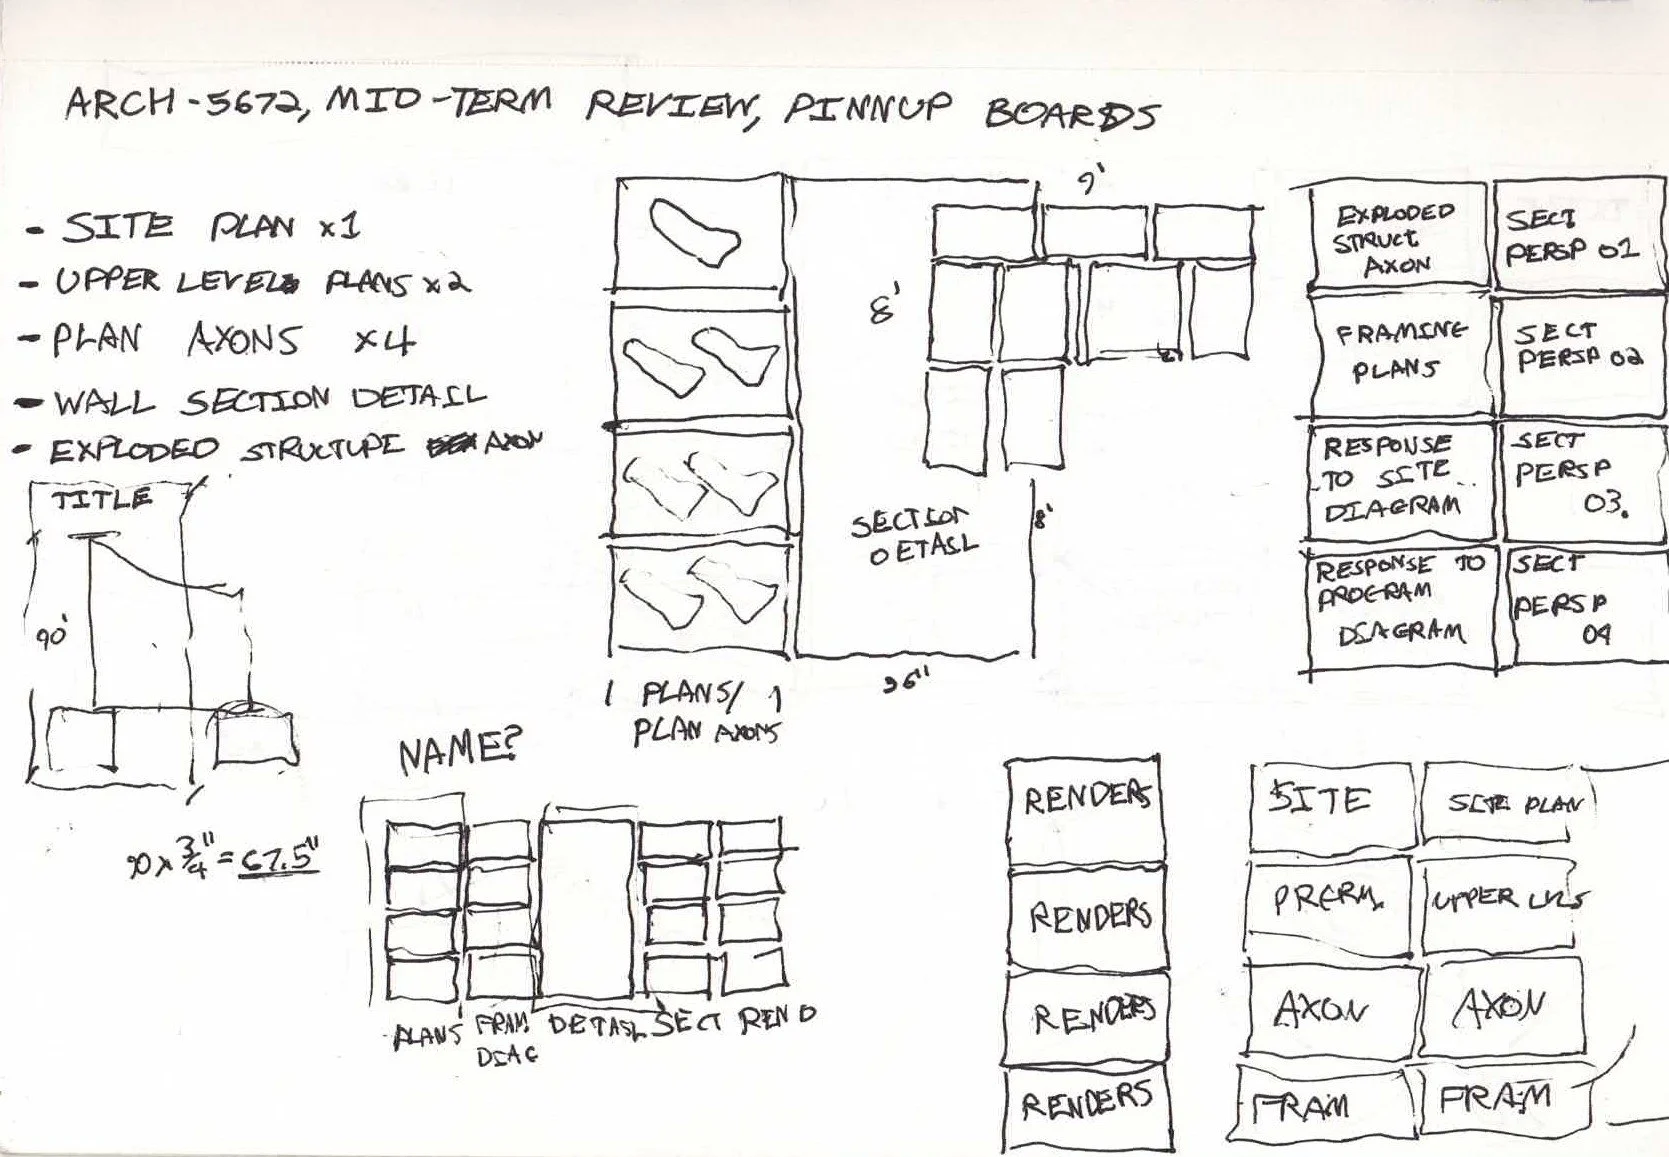 ARCH-5672, MID-TERM REVIEW, PINNUP BOARDS
- SITE PLAN x1
- UPPER LEVEL PLANS x2
- PLAN AXONS x4
- WALL SECTION DETAIL
- EXPLODED STRUCTURE AXON
TITLE
90'
90 x 3/4" = 67.5"
PLANS/
PLAN AXONS
SECTION
DETAIL
8'
96"
9'
8'
EXPLODED
STRUCT
AXON
SECT
PERSP 01
FRAMING
PLANS
SECT
PERSP 02
RESPONSE
TO SITE
DIAGRAM
SECT
PERSP
03.
RESPONSE TO
PROGRAM
DIAGRAM
SECT
PERSP
04
NAME?
PLANS
FRAM
DIAG
DETAIL
SECT
REND
RENDERS
RENDERS
RENDERS
RENDERS
SITE
SITE PLAN
PRGRM.
UPPER LVLS
AXON
AXON
FRAM
FRAM